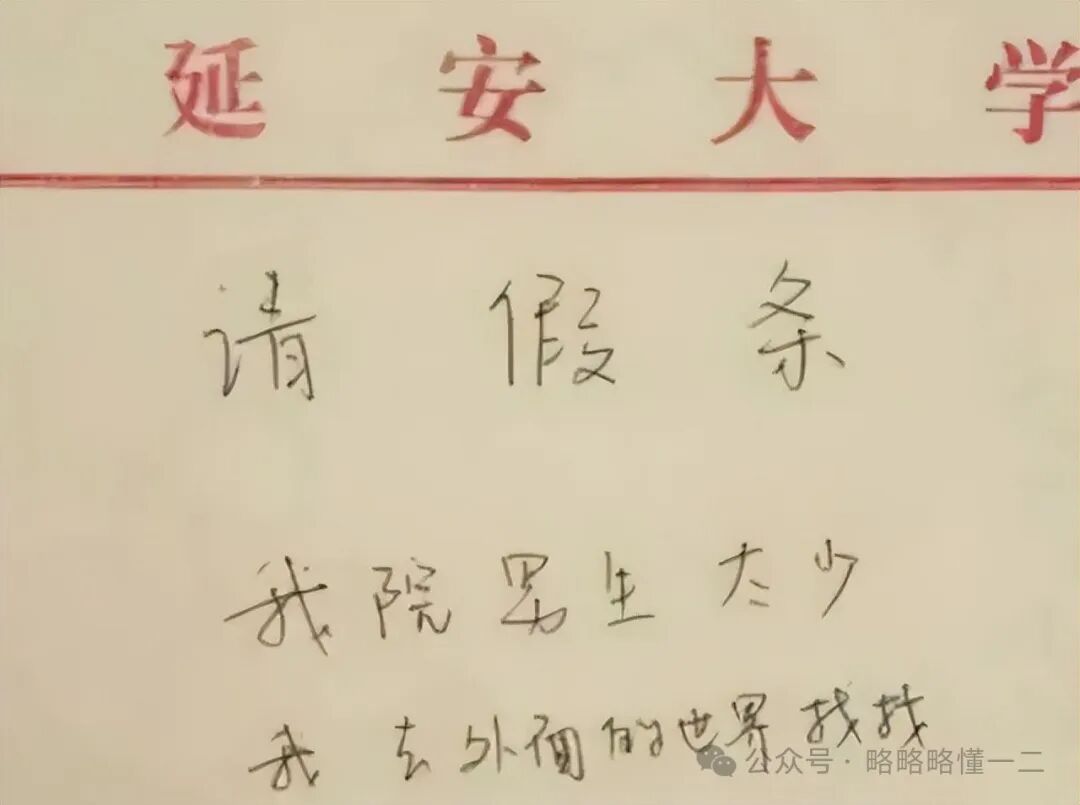 延安大学
请假条
我院男生太少
我去外面的世界找找
公众号·略略略懂一二